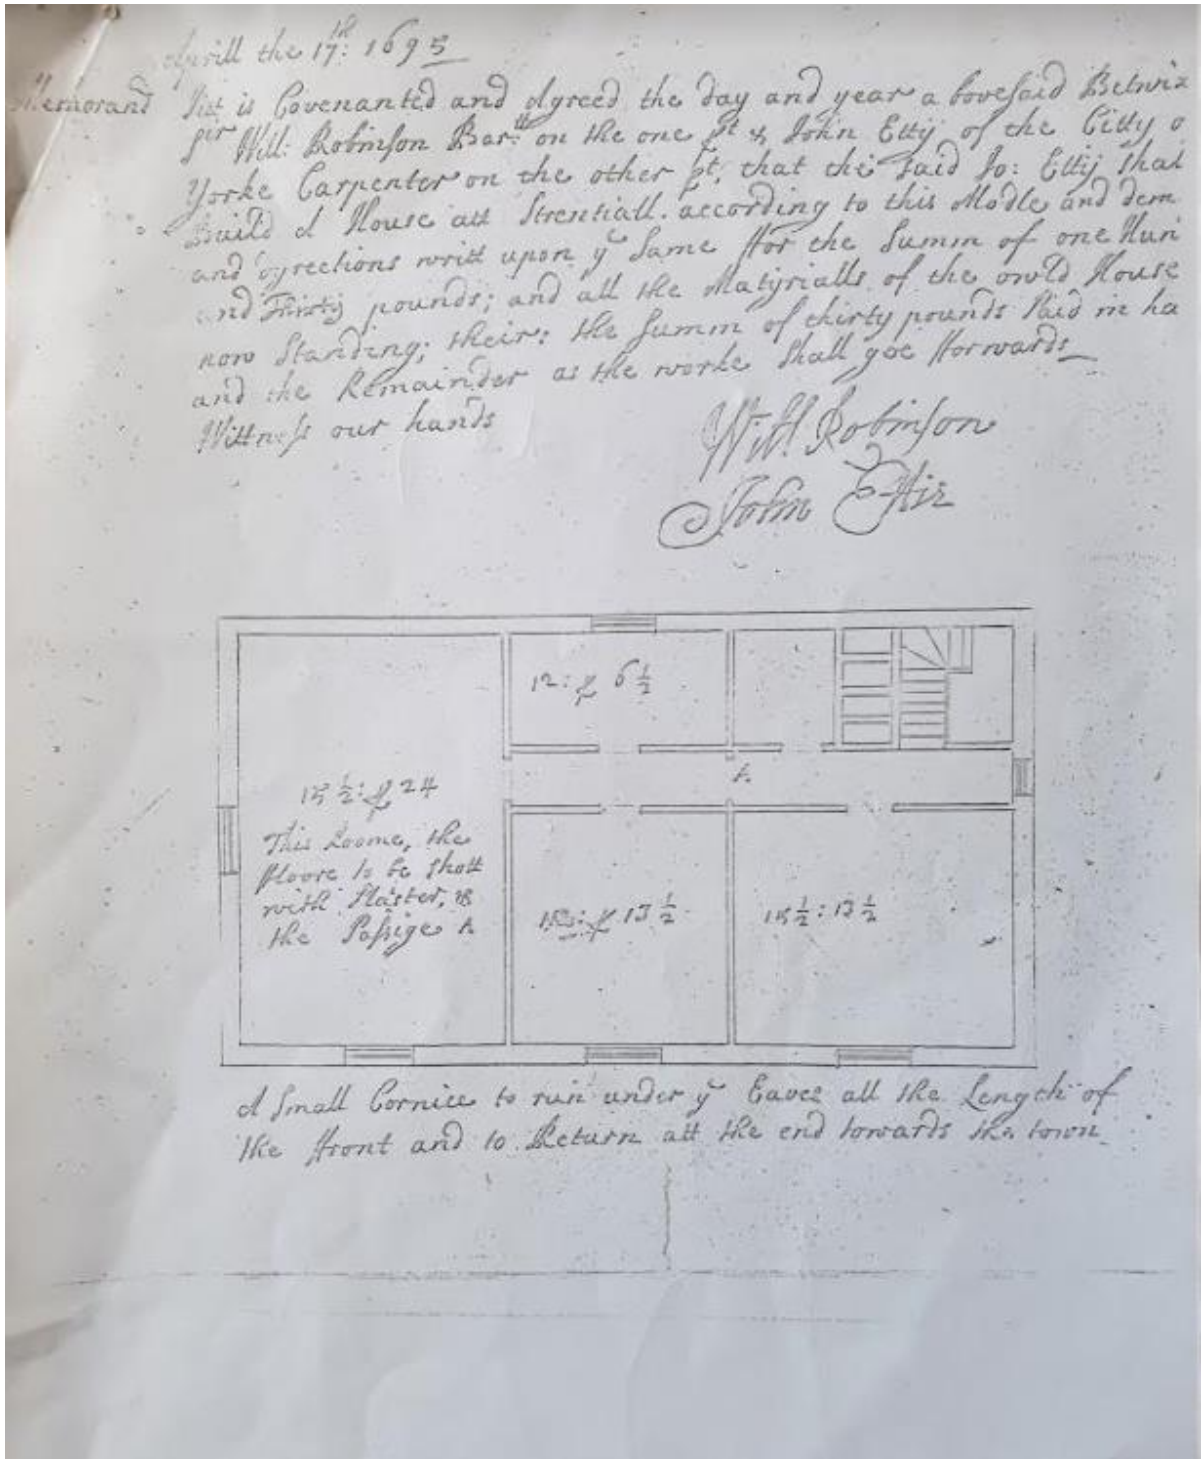 Aprill the 17th: 1695
Memorand itt is Covenanted and Agreed the day and year abovesaid Betwix
Sir Will: Robinson Bartt on the one pt & John Etty of the Citty o
Yorke Carpenter on the other pt, that the said Jo: Etty shal
Build A House att Strentiall. according to this Modle and dem
and dyrections writt upon ye Same ffor the Summ of one Hun
and Thirty pounds; and all the Matyrialls of the owld House
now Standing; their: the Summ of thirty pounds Paid in ha
and the Remainder as the worke shall goe fforwards
Wittness our hands
Will Robinson
John Ettie
12: f 6 1/2
A
15 1/2: f 24
This Roome, the
floore to be shott
with Plaster, &
the Passige A
f 13 1/2
15 1/2 : 13 1/2
A Small Cornice to run under ye Eaves all the Length of
the ffront and to Return att the end towards the town